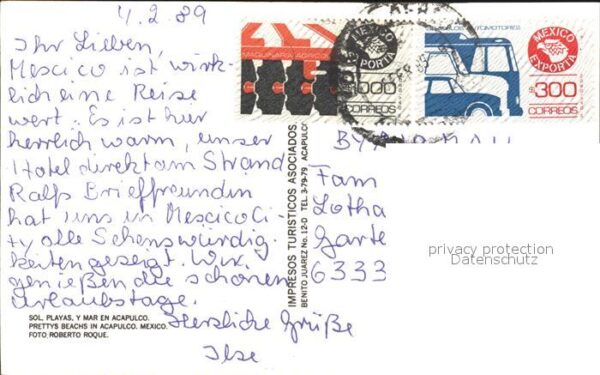 4.2.89
Ihr Lieben,
Mexcico ist wirk-
lich eine Reise
wert. Es ist hier
herrlich warm, unser
Hotel direkt am Strand
Ralfs Brieffreundin
hat uns in Mexcico Ci-
ty alle Sehenswürdig-
keiten gezeigt. Wir
genießen die schönen
Urlaubstage.
Herzliche Grüße
Ilse
SOL, PLAYAS, Y MAR EN ACAPULCO.
PRETTYS BEACHS IN ACAPULCO. MEXICO.
FOTO ROBERTO ROQUE.
IMPRESOS TURISTICOS ASOCIADOS
BENITO JUAREZ No. 12-D TEL. 3-79-79 ACAPULCO
MAQUINARIA AGRICOLA
EXPORTA
CORREOS
AUTOMOTORES
MEXICO
EXPORTA
300
CORREOS
BY
Fam
Lotha
Garte
6333
privacy protection
Datenschutz